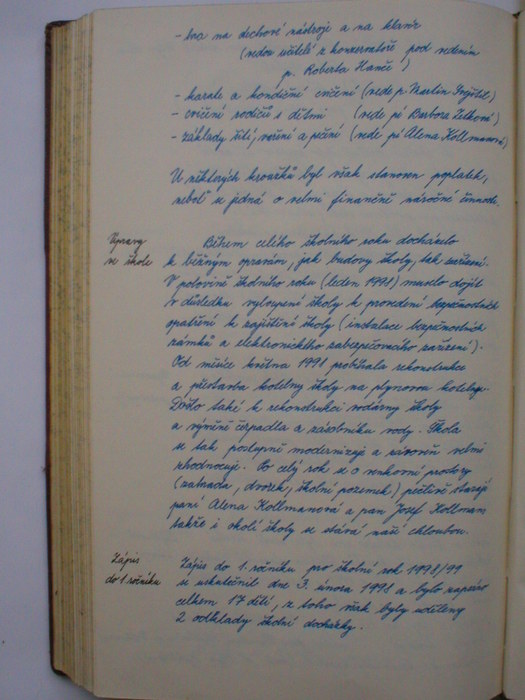 - hra na dechové nástroje a na klavír
(vedou učitelé z konzervatoře pod vedením
p. Roberta Hanče)
- karate a kondiční cvičení (vede p. Martin
- cvičení rodičů s dětmi (vede pí Barbora Zelková)
- základy šití, vaření a pečení (vede pí Alena Hollmanová)
U některých kroužků byl však stanoven poplatek,
neboť se jedná o velmi finančně náročné činnosti.
Úpravy
ve škole
Během celého školního roku docházelo
k běžným opravám, jak budovy školy, tak zařízení.
V polovině školního roku (leden 1998) muselo dojít
v důsledku vyloupení školy k provedení bezpečnostních
opatření k zajištění školy (instalace bezpečnostních
zámků a elektronického zabezpečovacího zařízení).
Od měsíce května 1998 probíhala rekonstrukce
a přestavba kotelny školy na plynovou kotelnu.
Došlo také k rekonstrukci vodárny školy
a výměně čerpadla a zásobníku vody. Škola
se tak postupně modernizuje a zároveň velmi
zhodnocuje. Po celý rok se o venkovní prostory
(zahrada, dvorek, školní pozemek) pečlivě starají
paní Alena Hollmanová a pan Josef Hollman
takže i okolí školy se stává naší chloubou.
Zápis
do 1. ročníku
Zápis do 1. ročníku pro školní rok 1998/99
se uskutečnil dne 3. února 1998 a bylo zapsáno
celkem 17 dětí, z toho však byly uděleny
2 odklady školní docházky.